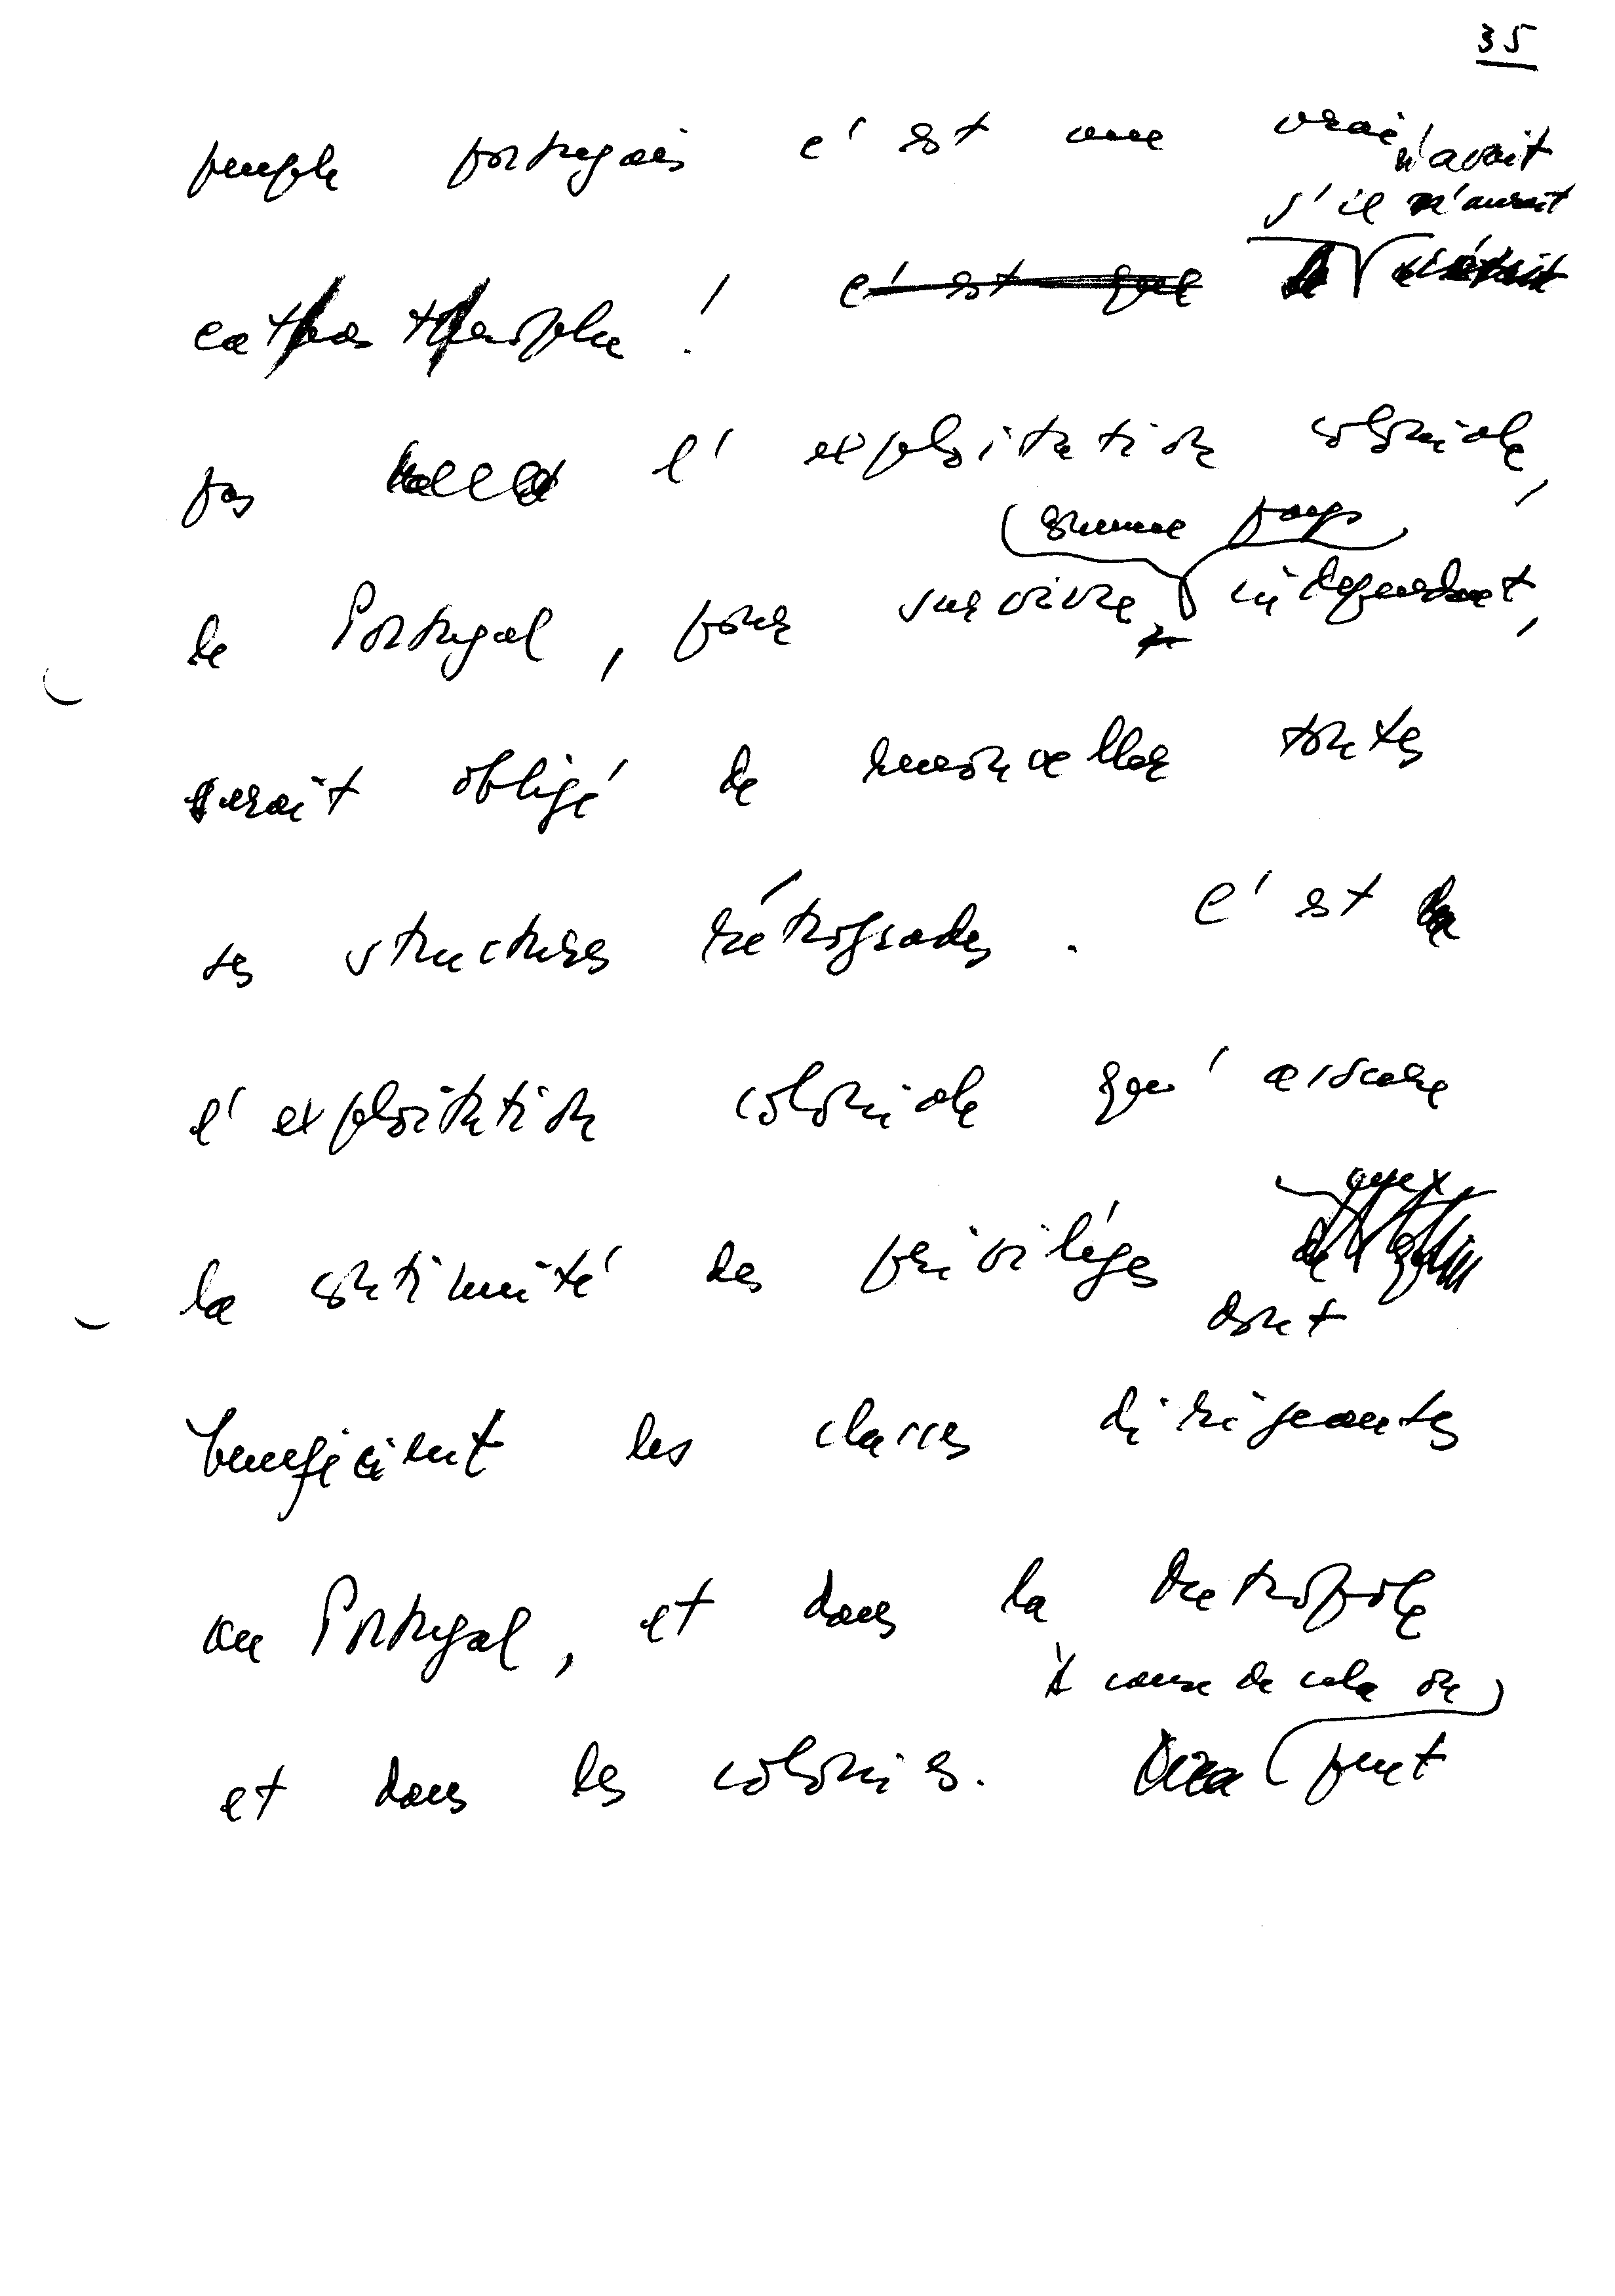 35
peuple portugais c'est une vraie
n'avait
s'il n'aurait
catastrophe ! c'est que
pas l'exploitation coloniale,
comme pays
le Portugal, pour survivre independant,
serait obligé de renouveller toutes
ses structures rétrogrades. C'est
l'exploitation coloniale qu'assure
la continuité des priviléges
dont
beneficient les classes dirigeantes
au Portugal, et dans la metropole
À cause de cela on
et dans les colonies. peut